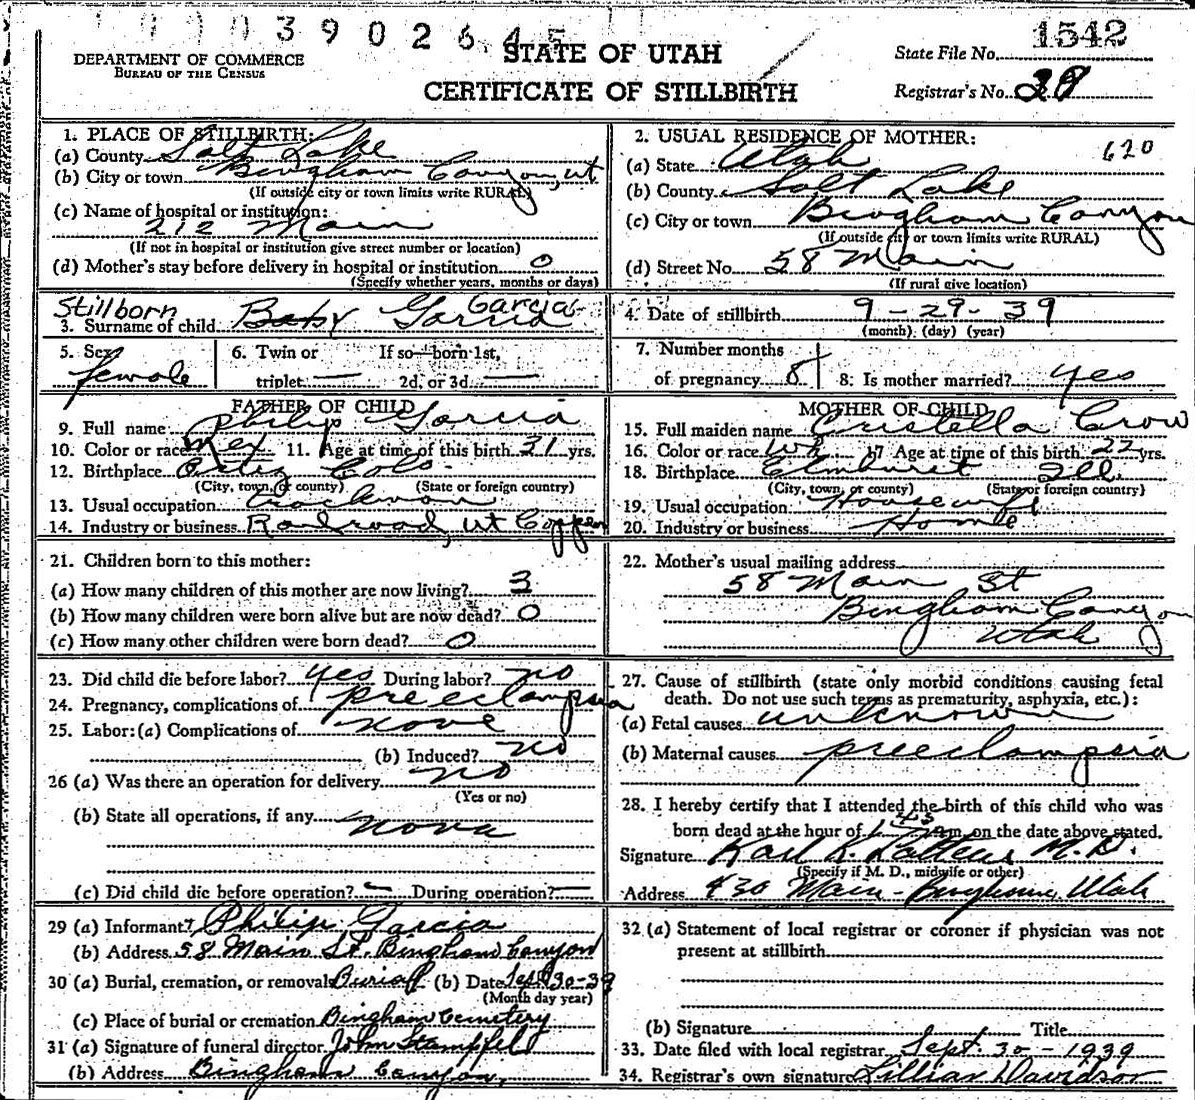 390264
1542
DEPARTMENT OF COMMERCE
BUREAU OF THE CENSUS
STATE OF UTAH
CERTIFICATE OF STILLBIRTH
State File No.
Registrar's No. 29
1. PLACE OF STILLBIRTH:
(a) County Salt Lake
(b) City or town Bingham Canyon, Ut
(If outside city or town limits write RURAL)
(c) Name of hospital or institution:
212 Main
(If not in hospital or institution give street number or location)
(d) Mother's stay before delivery in hospital or institution 0
(Specify whether years, months or days)
2. USUAL RESIDENCE OF MOTHER:
620
(a) State Utah
(b) County Salt Lake
(c) City or town Bingham Canyon
(If outside city or town limits write RURAL)
(d) Street No. 58 Main
(If rural give location)
Stillborn Garcia
3. Surname of child Baby Garcia
4. Date of stillbirth 9-29-39
(month) (day) (year)
5. Sex female
6. Twin or triplet — If so—born 1st, 2d, or 3d —
7. Number months of pregnancy 8
8. Is mother married? yes
FATHER OF CHILD
9. Full name Philip Garcia
10. Color or race Mex 11. Age at time of this birth 31 yrs.
12. Birthplace Colo.
(City, town, or county) (State or foreign country)
13. Usual occupation Trackman
14. Industry or business Railroad, Ut Copper
MOTHER OF CHILD
15. Full maiden name Cristella Crow
16. Color or race Wh 17 Age at time of this birth 22 yrs.
18. Birthplace Elmhurst Ill
(City, town, or county) (State or foreign country)
19. Usual occupation Housewife
20. Industry or business Home
21. Children born to this mother:
(a) How many children of this mother are now living? 3
(b) How many children were born alive but are now dead? 0
(c) How many other children were born dead? 0
22. Mother's usual mailing address
58 Main St
Bingham Canyon
Utah
23. Did child die before labor? Yes During labor? no
24. Pregnancy, complications of preeclampsia
25. Labor: (a) Complications of none
(b) Induced? no
26 (a) Was there an operation for delivery no
(Yes or no)
(b) State all operations, if any none
(c) Did child die before operation? — During operation? —
27. Cause of stillbirth (state only morbid conditions causing fetal
death. Do not use such terms as prematurity, asphyxia, etc.):
(a) Fetal causes unknown
(b) Maternal causes preeclampsia
28. I hereby certify that I attended the birth of this child who was
born dead at the hour of m. on the date above stated.
Signature Karl M.D.
(Specify if M. D., midwife or other)
Address 430 Main - Bingham, Utah
29 (a) Informant Philip Garcia
(b) Address 58 Main St. Bingham Canyon
30 (a) Burial, cremation, or removal Burial (b) Date Sept 30-39
(Month day year)
(c) Place of burial or cremation Bingham Cemetery
31 (a) Signature of funeral director John Stampfel
(b) Address Bingham Canyon,
32 (a) Statement of local registrar or coroner if physician was not
present at stillbirth
(b) Signature Title
33. Date filed with local registrar Sept. 30-1939
34. Registrar's own signature Lillian Davidson